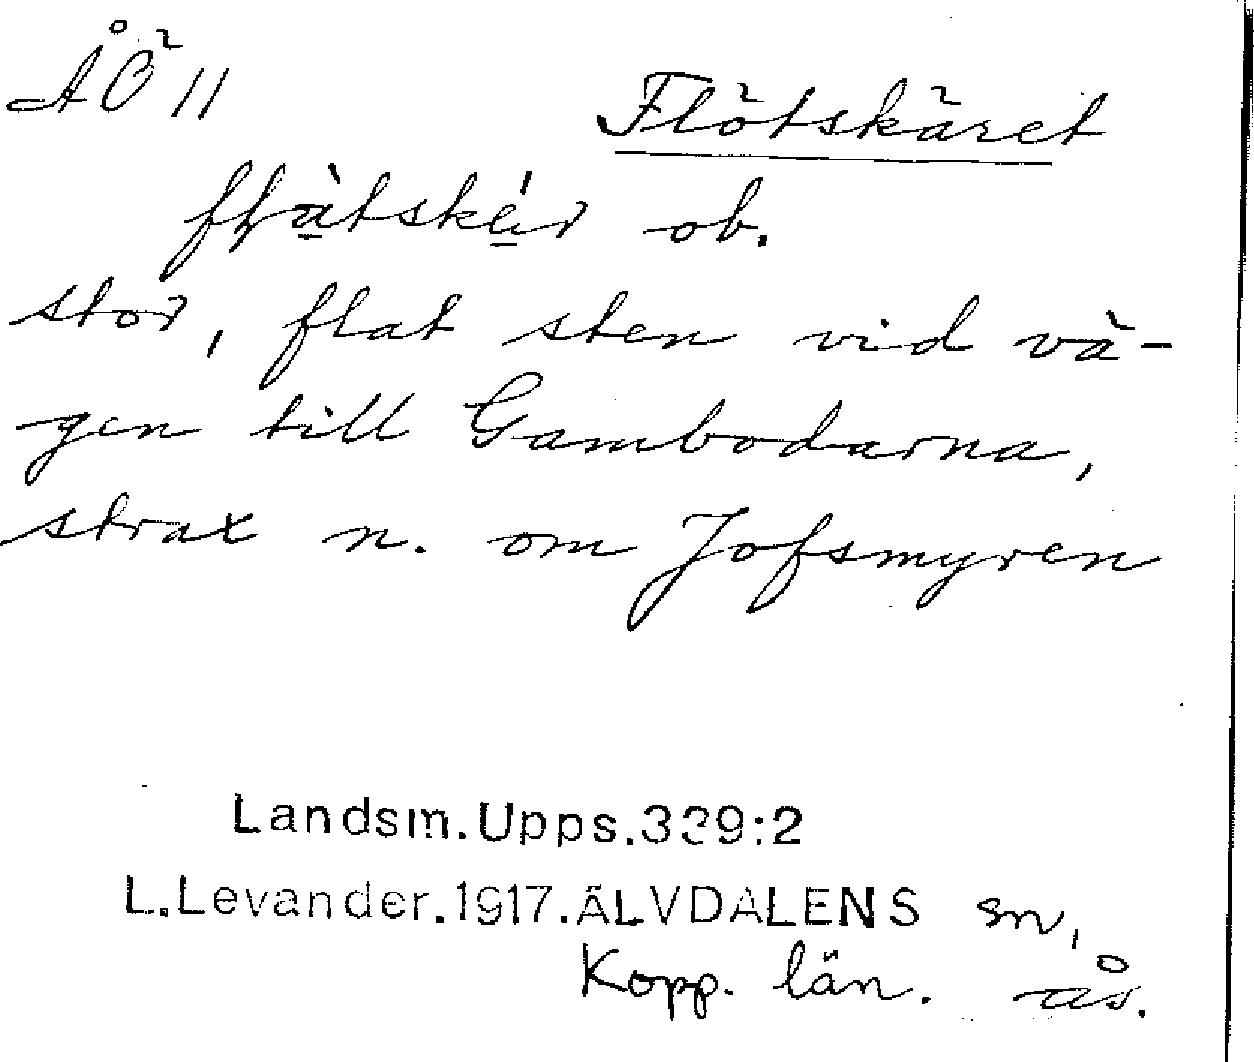 ÅÖ 11
Flötskäret
stor, flat sten vid vä-
gen till Gambodarna,
strax n. om Jofsmyren
Landsm.Upps.339:2
L.Levander.1917.ÄLVDALENS sn,
Kopp. län. ås.